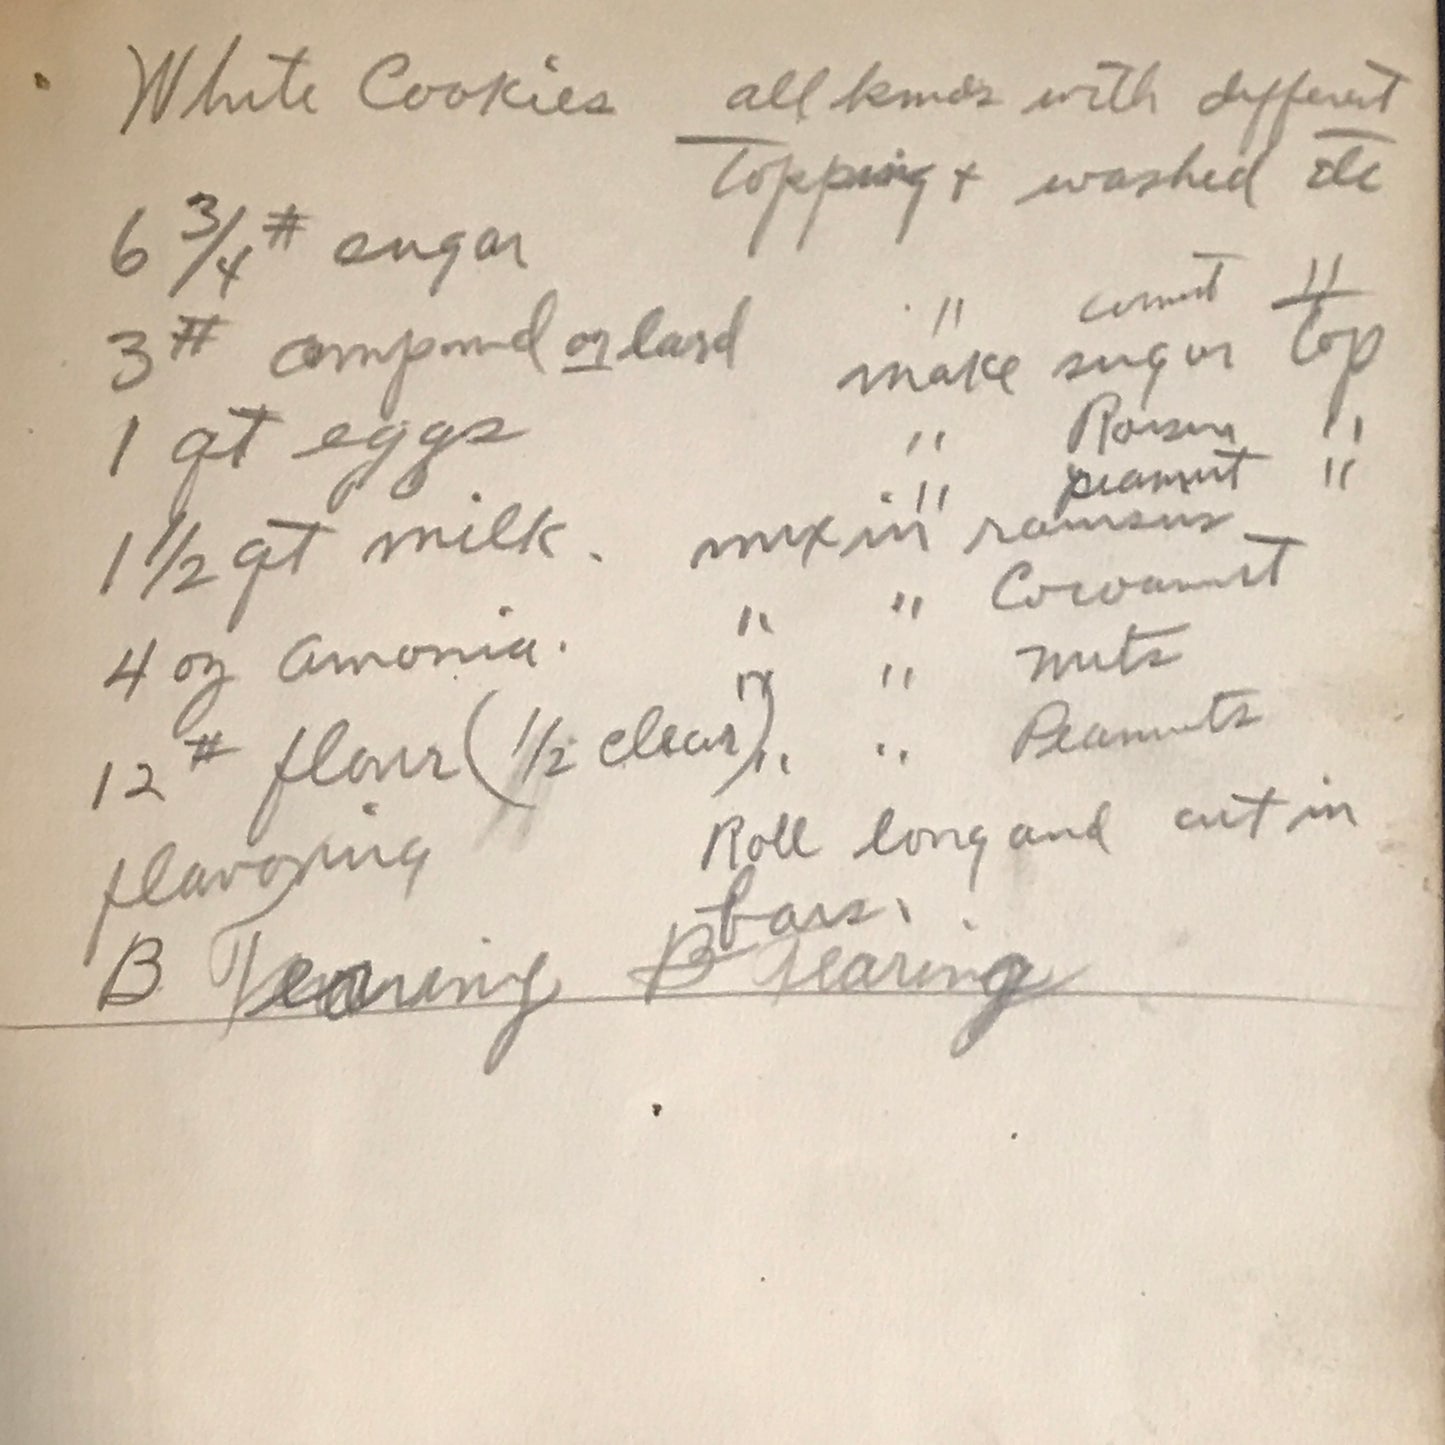 White Cookies all kinds with different
Topping + washed etc
6 3/4 # sugar
3 # compound or lard
1 qt eggs
1 1/2 qt milk.
4 oz amonia.
12 # flour (1/2 clear)
flavoring
" "
make sugar top
" Raisin "
" peanut "
mix in raisins
" " Cocoanut
" " nuts
" " Peanuts
Roll long and cut in
bars.
B Tearing B Tearing